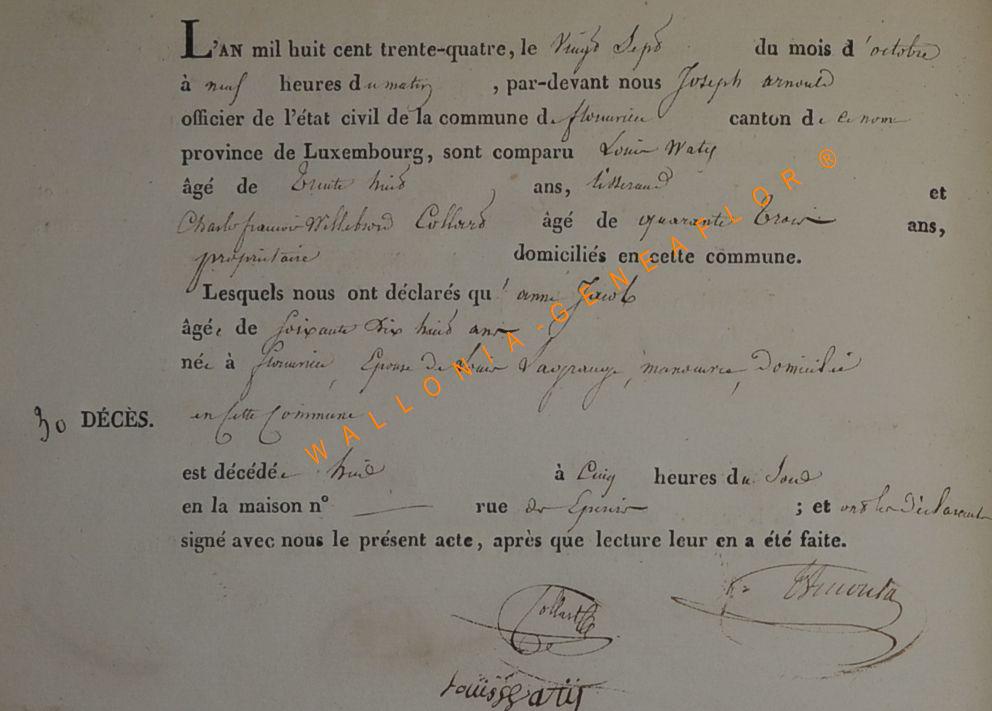 L'AN mil huit cent trente-quatre, le Vingt Sept du mois d'octobre
à neuf heures du matin, par-devant nous Joseph arnould
officier de l'état civil de la commune de florenville canton de ce nom
province de Luxembourg, sont comparu Louis Watij
âgé de trente huit ans, tisserand et
Charle francois Willebrord Collard âgé de quarante trois ans,
propriétaire domiciliés en cette commune.
Lesquels nous ont déclarés qu'anne Jacob
âgée de soixante dix huit ans
née à Epouse de Louis Lagrange, manoeuvre, domicilié
30 DÉCÈS. en cette Commune
est décédée hier à Cinq heures du Soir
en la maison n° — rue des Epiniers ; et ont les déclarants
signé avec nous le présent acte, après que lecture leur en a été faite.
Collard JArnould
Louis Watij
WALLONIA-GENEAFLOR®